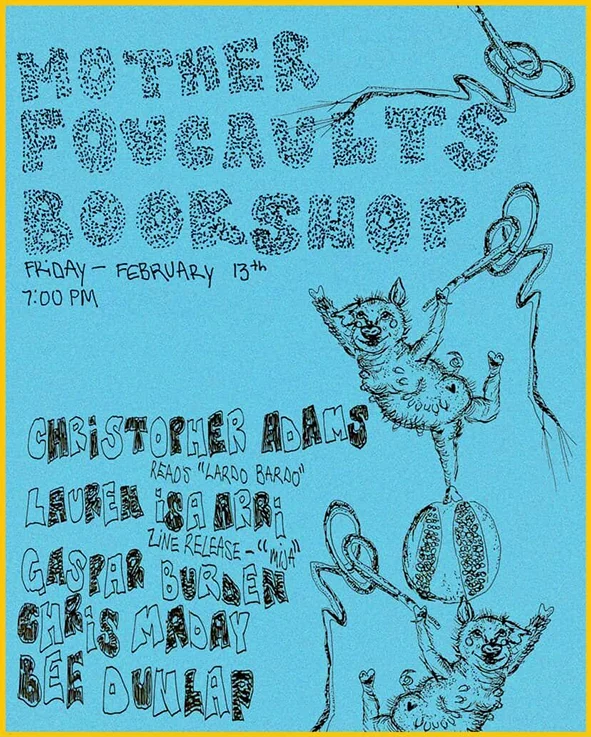 MOTHER
FOUCAULTS
BOOKSHOP
FRIDAY - FEBRUARY 13th
7:00 PM
CHRISTOPHER ADAMS
READS "LARDO BARDO"
LAUREN ISA ARRI
ZINE RELEASE - "MIJA"
GASPAR BURDEN
CHRIS MADAY
BEE DUNLAP